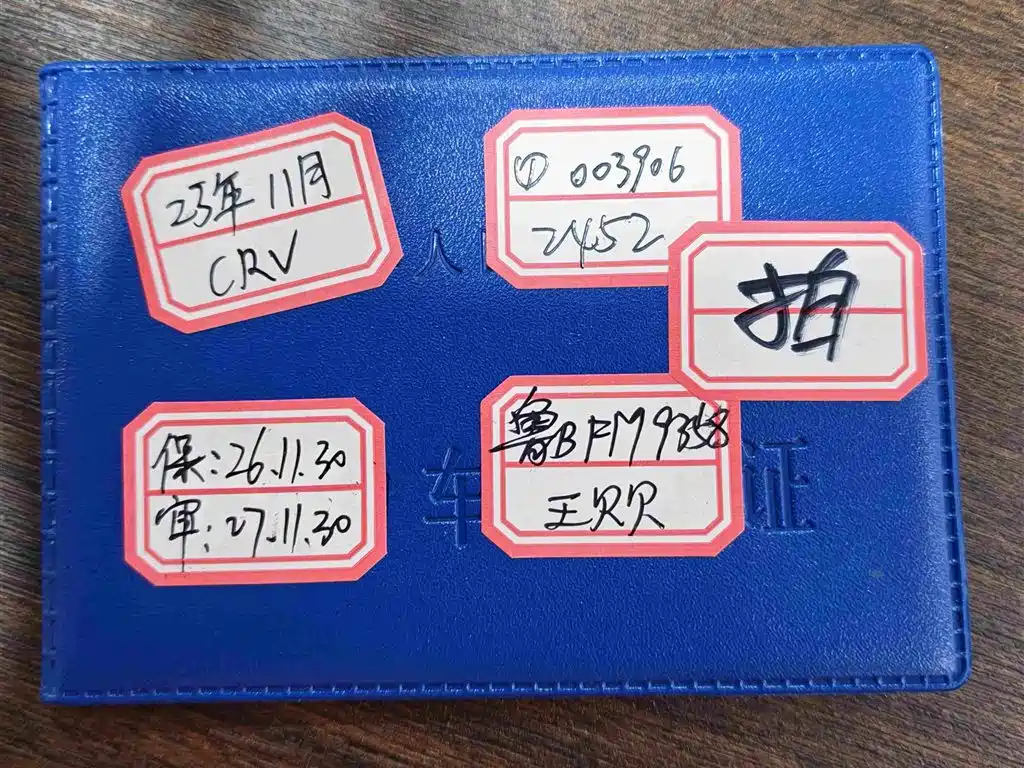 23年11月
CRV
① 003906
2452
拍
保:26.11.30
审:27.11.30
鲁BFM9358
王贝贝
人
车
证